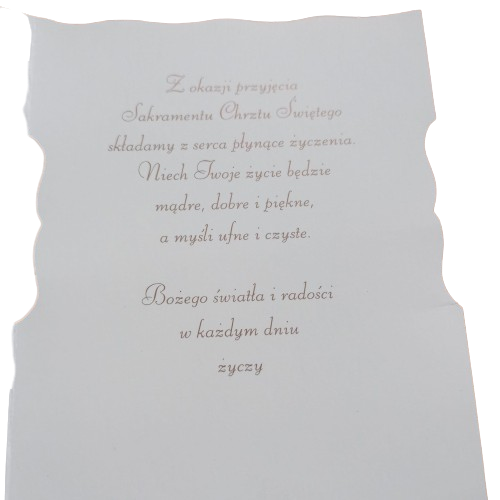 Z okazji przyjęcia
Sakramentu Chrztu Świętego
składamy z serca płynące życzenia.
Niech Twoje życie będzie
mądre, dobre i piękne,
a myśli ufne i czyste.
Bożego światła i radości
w każdym dniu
życzy